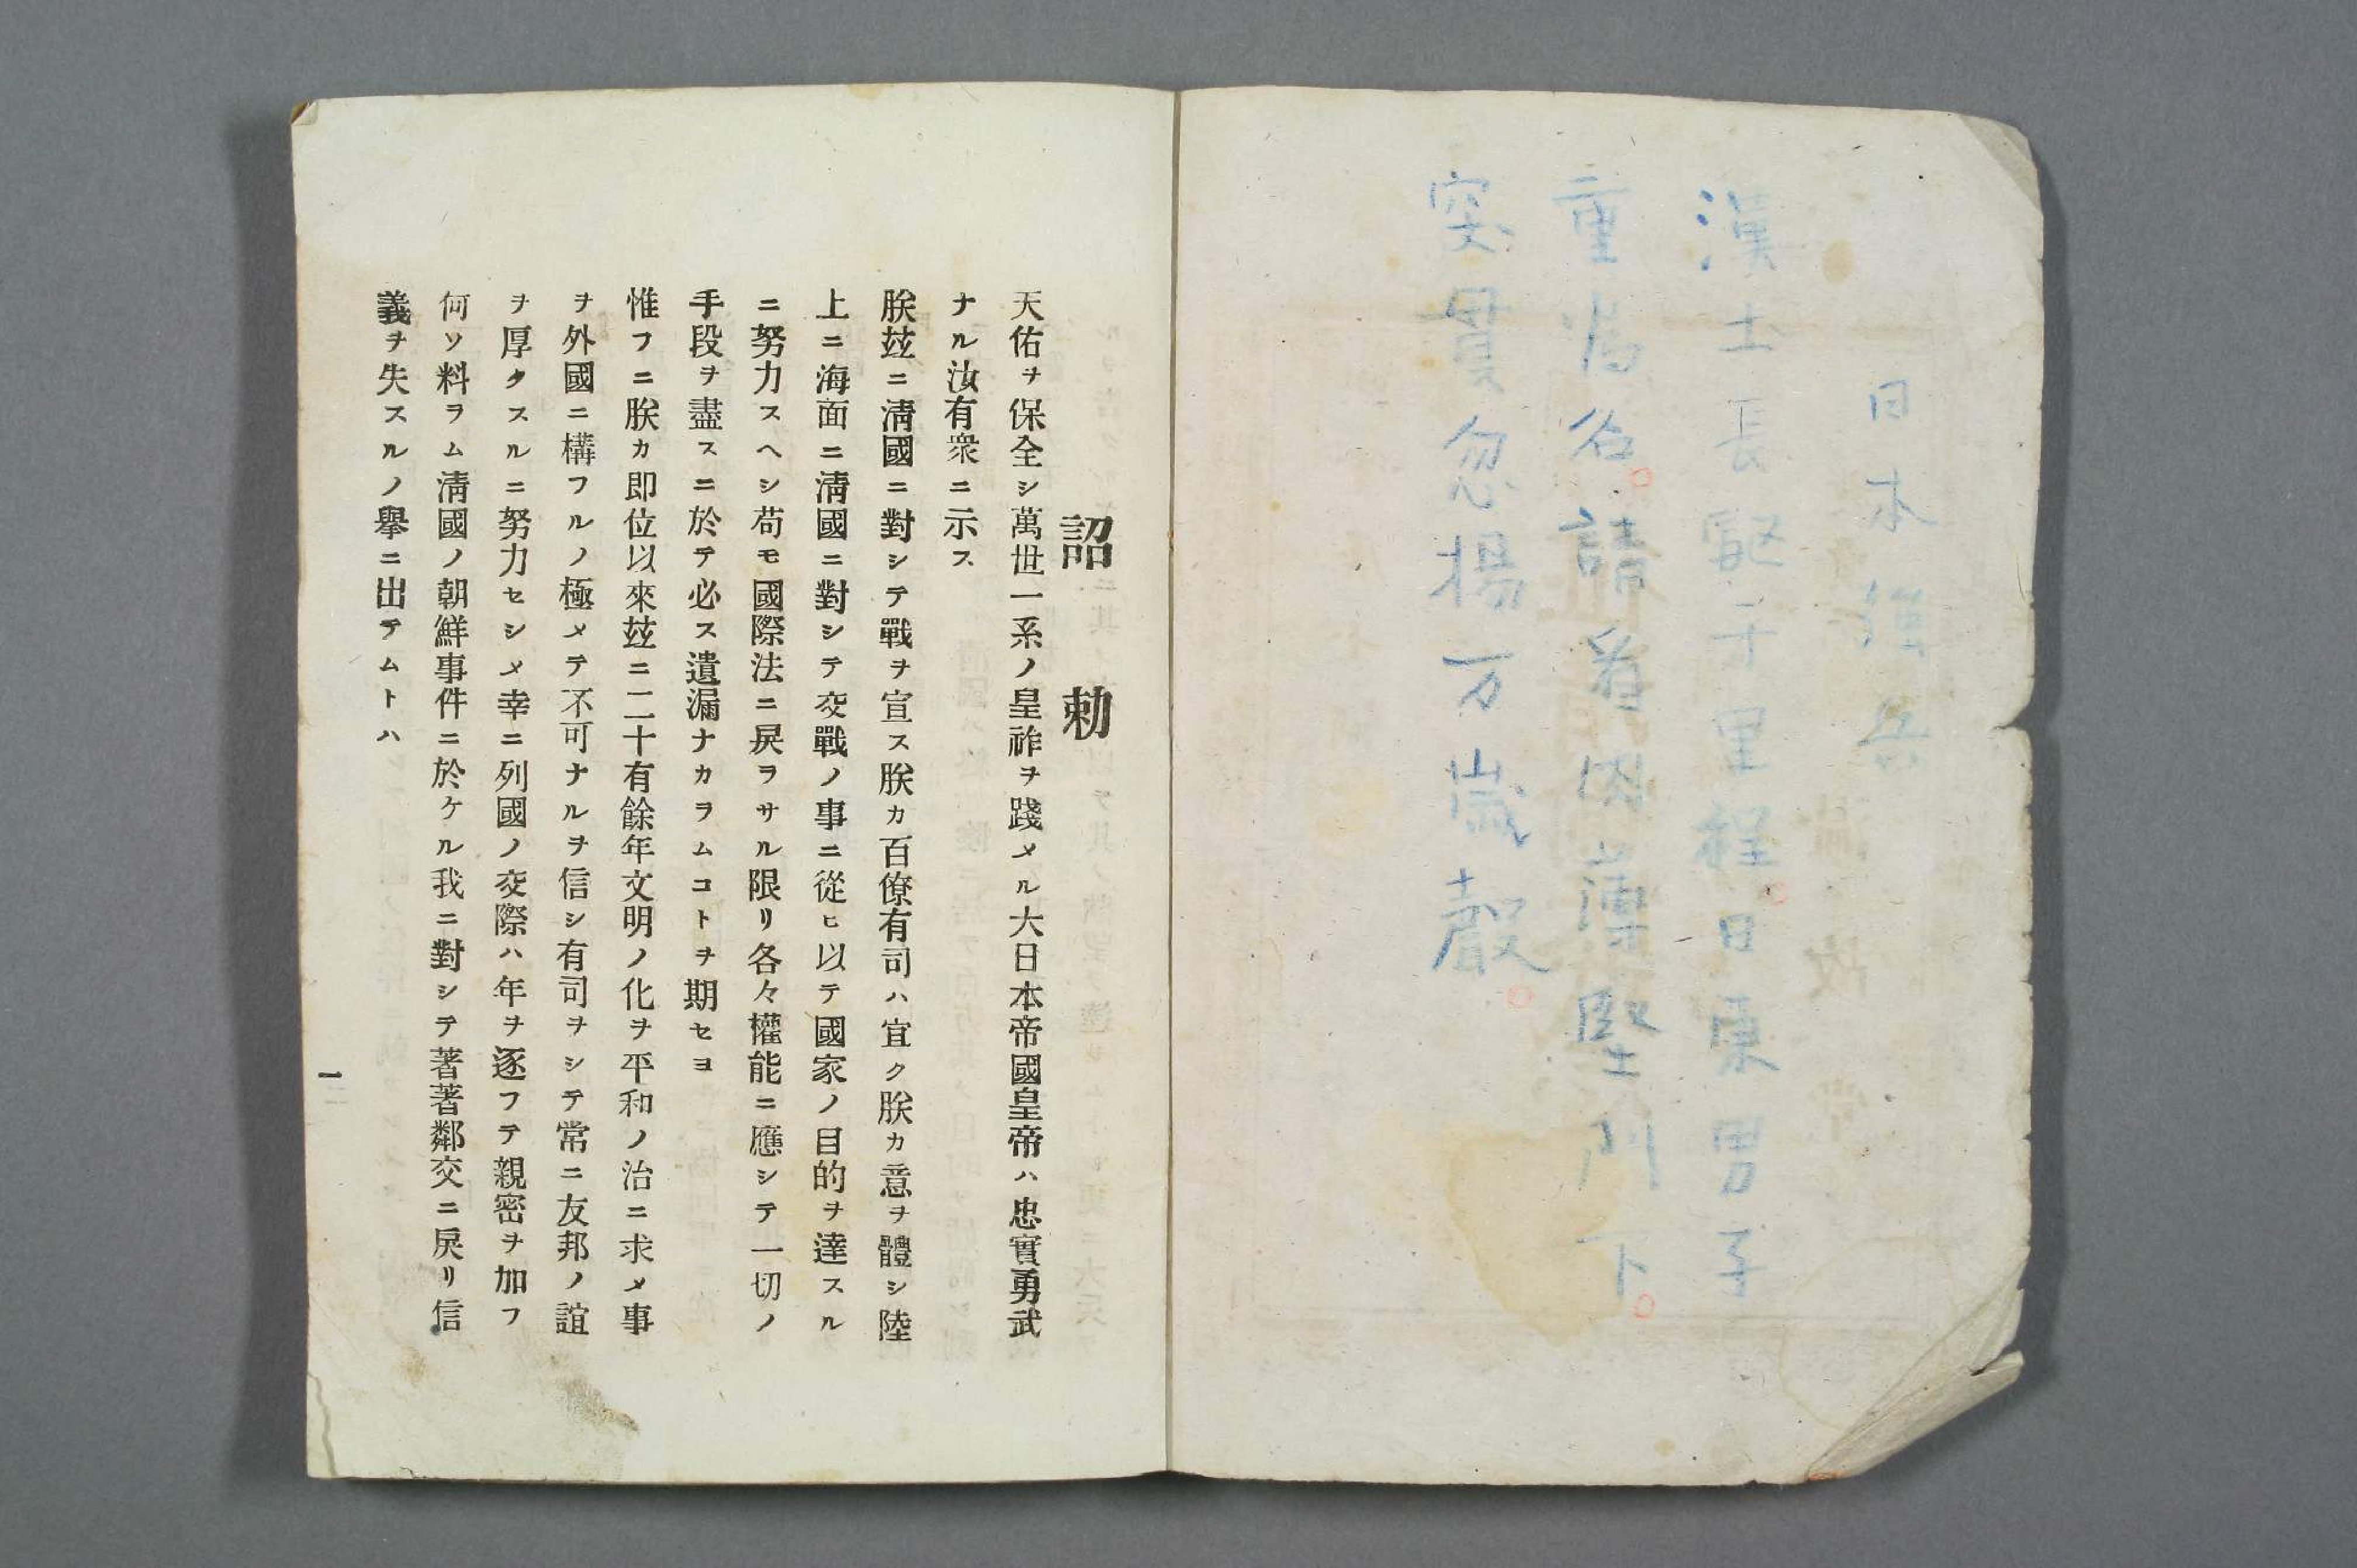 日本漢兵
漢土長駆千里程。日東男子
重為名。請看肉薄堅門下。
突貫忽揚万歳聲。
詔勅
天佑ヲ保全シ萬世一系ノ皇祚ヲ踐メル大日本帝國皇帝ハ忠實勇武
ナル汝有衆ニ示ス
朕玆ニ淸國ニ對シテ戰ヲ宣ス朕カ百僚有司ハ宜ク朕カ意ヲ體シ陸
上ニ海面ニ淸國ニ對シテ交戰ノ事ニ從ヒ以テ國家ノ目的ヲ達スル
ニ努力スヘシ苟モ國際法ニ戾ラサル限リ各々權能ニ應シテ一切ノ
手段ヲ盡スニ於テ必ス遺漏ナカラムコトヲ期セヨ
惟フニ朕カ即位以來玆ニ二十有餘年文明ノ化ヲ平和ノ治ニ求メ事
ヲ外國ニ構フルノ極メテ不可ナルヲ信シ有司ヲシテ常ニ友邦ノ誼
ヲ厚クスルニ努力セシメ幸ニ列國ノ交際ハ年ヲ逐フテ親密ヲ加フ
何ソ料ラム淸國ノ朝鮮事件ニ於ケル我ニ對シテ著著鄰交ニ戾リ信
義ヲ失スルノ擧ニ出テムトハ
一